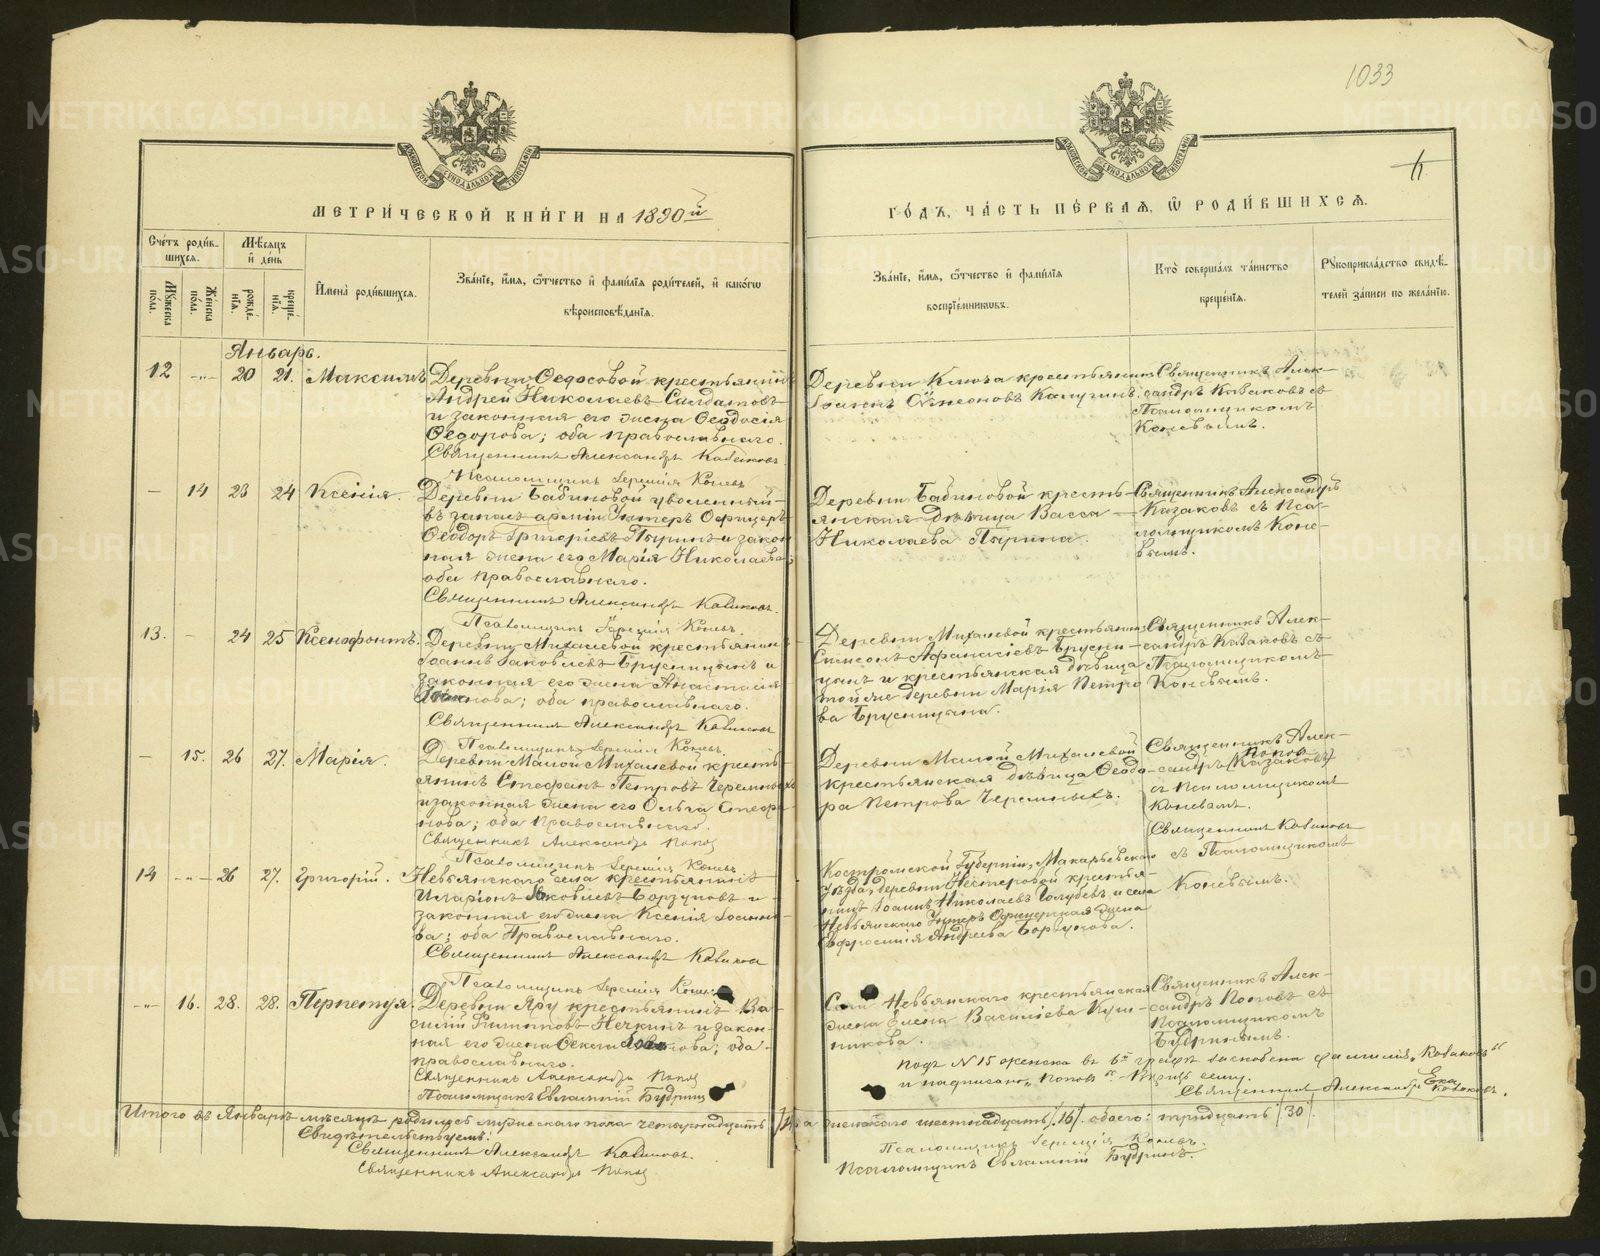 1033
МЕТРИ́ЧЕСКОЙ КНИ́ГИ НА 1890й
ГО́ДЪ, ЧА́СТЬ ПЕ́РВАЯ, Ѡ РОДИ́ВШИХСЯ.
Сче́тъ роди́в-
шихся.
Мꙋжеска по́ла.
Же́нска по́ла.
Мѣ́сяцъ и де́нь
рожде́нїя.
креще́нїя.
И́мена̀ роди́вшихся.
Зва́нїе, и́мя, ѻ́тчество и фами́лїя роди́телей, и како́гѡ
вѣроисповѣ́данїя.
Зва́нїе, и́мя, ѻ́тчество и фами́лїя
воспрїе́мникѡвъ.
Кто̀ соверша́лъ та́инство
креще́нїя.
Рꙋкоприкла́дство свидѣ́-
телей за́писи по жела́нїю.
Январь.
12 -"- 20 21. Максимъ
Деревни Ѳедосовой крестьянинъ
Андрей Николаевъ Солдатовъ
и законная его жена Ѳеодосія
Ѳедорова; оба православнаго.
Священникъ Александръ Казаковъ
Псаломщикъ Іеремія Коневъ
Деревни Ключа крестьянинъ
Іоаннъ Сѵмеоновъ Калугинъ
Священникъ Алек-
сандръ Казаковъ съ
Псаломщикомъ
Коневымъ.
— 14 23 24 Ксенія.
Деревни Бабиновой уволенный
въ запасъ арміи Унтеръ Офицеръ
Ѳеодоръ Григорьевъ Пыринъ и закон
ная жена его Марія Николаева;
оба православнаго.
Священникъ Александръ Казаковъ.
Псаломщикъ Іеремія Коневъ.
Деревни Бабиновой кресть-
янская дѣвица Васса
Николаева Пырина.
Священникъ Александръ
Казаковъ съ Пса-
ломщикомъ Коне-
вымъ.
13. - 24 25 Ксенофонтъ.
Деревни Михалевой крестьянинъ
Іоаннъ Іаковлевъ Брусницынъ и
законная его жена Анастасія
оба православнаго.
Священникъ Александръ Казаковъ
Псаломщикъ Іеремія Коневъ.
Деревни Михалевой крестьянинъ
Симеонъ Аѳанасіевъ Брусни-
цынъ и крестьянская дѣвица
той же деревни Марія Петро
ва Брусницына.
Священникъ Алек-
сандръ Казаковъ съ
Псаломщикомъ
Коневымъ.
— 15. 26 27. Марія.
Деревни Малой Михалевой кресть-
янинъ Стефанъ Петровъ Черемныхъ
и законная жена его Ольга Стефа
нова; оба православнаго.
Священникъ Александръ Попов
Псаломщикъ Іеремія Коневъ
Деревни Малой Михалевой
крестьянская дѣвица Ѳеодо-
ра Петрова Черемныхъ.
Священникъ Алек-
Попов
сандръ (Казаковъ)
съ псаломщикомъ
Коневымъ.
14 -"- 26 27. Григорій.
Невьянскаго села крестьянинъ
Иларіонъ Яковлевъ Борзуновъ и
законная его жена Ксенія Іоанно-
ва; оба Православнаго.
Священникъ Александръ Казаковъ
Псаломщикъ Іеремія Коневъ
Костромской Губерніи, Макарьевскаго
Уѣзда, деревни Нестеровой крестья-
нинъ Іоаннъ Николаевъ Голубевъ и села
Невьянскаго Унтеръ Офицерская жена
Евфросинія Андреева Борзунова.
Священникъ Казаковъ
съ Псаломщикомъ
Коневымъ.
-"- 16. 28. 28. Перпетуя.
Деревни Яру крестьянинъ Ва-
силій Филиповъ Нечкинъ и закон-
ная его жена оба
православнаго.
Священникъ Александръ Попов
Псаломщикъ Евлампій Будринъ
Села Невьянскаго крестьянская
жена Елена Васильева Куш-
никова.
Священникъ Алек-
сандръ Поповъ съ
Псаломщикомъ
Будринымъ.
подъ N 15 женска въ 6й графѣ фамилія „Казаковъ"
и надписано „Попов"
Священникъ Александръ Казаковъ.
Итого въ Январѣ мѣсяцѣ родилось мужескаго пола четырнадцать /14/, а женскаго шестнадцать /16/, обоего: тридцать /30/.
Свидѣтельствуемъ:
Священникъ Александръ Казаковъ.
Священникъ Александръ Попов
Псаломщикъ Іеремія Коневъ.
Псаломщикъ Евлампій Будринъ.
METRIKI.GASO-URAL.RU